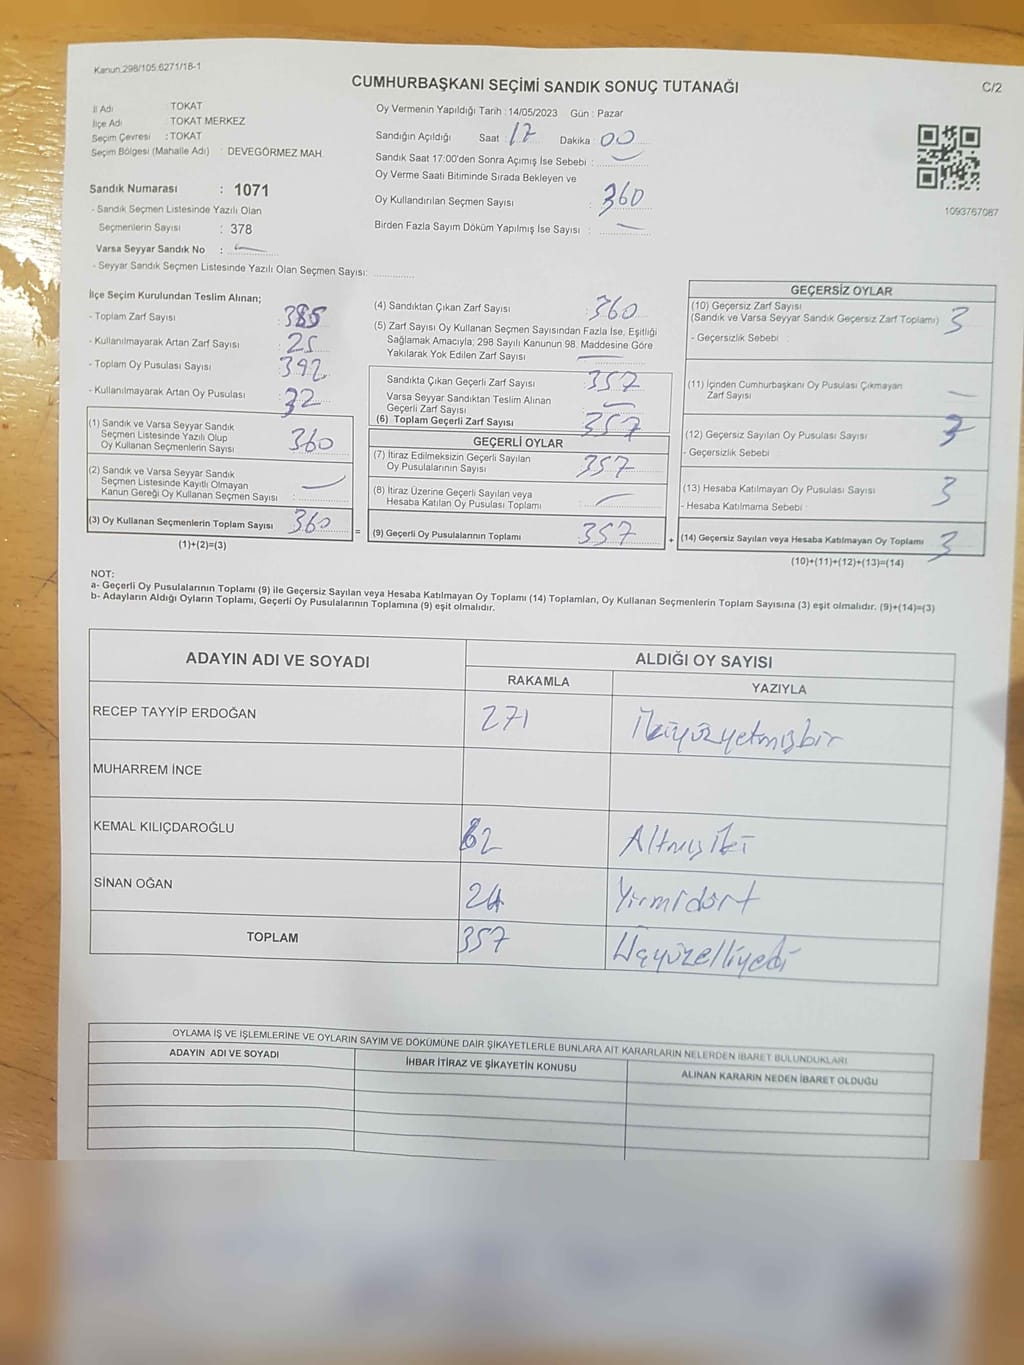 Kanun.298/105.6271/18-1
CUMHURBAŞKANI SEÇİMİ SANDIK SONUÇ TUTANAĞI
C/2
İl Adı : TOKAT
İlçe Adı : TOKAT MERKEZ
Seçim Çevresi : TOKAT
Seçim Bölgesi (Mahalle Adı) : DEVEGÖRMEZ MAH.
Sandık Numarası : 1071
- Sandık Seçmen Listesinde Yazılı Olan
Seçmenlerin Sayısı : 378
Varsa Seyyar Sandık No : —
- Seyyar Sandık Seçmen Listesinde Yazılı Olan Seçmen Sayısı: ............
Oy Vermenin Yapıldığı Tarih : 14/05/2023 Gün : Pazar
Sandığın Açıldığı Saat : 17 Dakika : 00
Sandık Saat 17:00'den Sonra Açımış İse Sebebi : —
Oy Verme Saati Bitiminde Sırada Bekleyen ve
Oy Kullandırılan Seçmen Sayısı : 360
Birden Fazla Sayım Döküm Yapılmış İse Sayısı : —
1093767087
İlçe Seçim Kurulundan Teslim Alınan;
- Toplam Zarf Sayısı : 385
- Kullanılmayarak Artan Zarf Sayısı : 25
- Toplam Oy Pusulası Sayısı : 392
- Kullanılmayarak Artan Oy Pusulası : 32
(1) Sandık ve Varsa Seyyar Sandık
Seçmen Listesinde Yazılı Olup
Oy Kullanan Seçmenlerin Sayısı : 360
(2) Sandık ve Varsa Seyyar Sandık
Seçmen Listesinde Kayıtlı Olmayan
Kanun Gereği Oy Kullanan Seçmen Sayısı : —
(3) Oy Kullanan Seçmenlerin Toplam Sayısı : 360
(1)+(2)=(3)
=
(4) Sandıktan Çıkan Zarf Sayısı : 360
(5) Zarf Sayısı Oy Kullanan Seçmen Sayısından Fazla İse, Eşitliği
Sağlamak Amacıyla; 298 Sayılı Kanunun 98. Maddesine Göre
Yakılarak Yok Edilen Zarf Sayısı : —
Sandıkta Çıkan Geçerli Zarf Sayısı : 357
Varsa Seyyar Sandıktan Teslim Alınan
Geçerli Zarf Sayısı : —
(6) Toplam Geçerli Zarf Sayısı : 357
GEÇERLİ OYLAR
(7) İtiraz Edilmeksizin Geçerli Sayılan
Oy Pusulalarının Sayısı : 357
(8) İtiraz Üzerine Geçerli Sayılan veya
Hesaba Katılan Oy Pusulası Toplamı : —
(9) Geçerli Oy Pusulalarının Toplamı : 357
+
GEÇERSİZ OYLAR
(10) Geçersiz Zarf Sayısı
(Sandık ve Varsa Seyyar Sandık Geçersiz Zarf Toplamı) : 3
- Geçersizlik Sebebi :
(11) İçinden Cumhurbaşkanı Oy Pusulası Çıkmayan
Zarf Sayısı : —
(12) Geçersiz Sayılan Oy Pusulası Sayısı : 3
- Geçersizlik Sebebi :
(13) Hesaba Katılmayan Oy Pusulası Sayısı : 3
- Hesaba Katılmama Sebebi :
(14) Geçersiz Sayılan veya Hesaba Katılmayan Oy Toplamı : 3
(10)+(11)+(12)+(13)=(14)
NOT:
a- Geçerli Oy Pusulalarının Toplamı (9) ile Geçersiz Sayılan veya Hesaba Katılmayan Oy Toplamı (14) Toplamları, Oy Kullanan Seçmenlerin Toplam Sayısına (3) eşit olmalıdır. (9)+(14)=(3)
b- Adayların Aldığı Oyların Toplamı, Geçerli Oy Pusulalarının Toplamına (9) eşit olmalıdır.
ADAYIN ADI VE SOYADI
ALDIĞI OY SAYISI
RAKAMLA
YAZIYLA
RECEP TAYYİP ERDOĞAN 271 İkiyüzyetmişbir
MUHARREM İNCE
KEMAL KILIÇDAROĞLU 62 Altmış iki
SİNAN OĞAN 24 Yirmidört
TOPLAM 357 Üçyüzelliyedi
OYLAMA İŞ VE İŞLEMLERİNE VE OYLARIN SAYIM VE DÖKÜMÜNE DAİR ŞİKAYETLERLE BUNLARA AİT KARARLARIN NELERDEN İBARET BULUNDUKLARI
ADAYIN ADI VE SOYADI
İHBAR İTİRAZ VE ŞİKAYETİN KONUSU
ALINAN KARARIN NEDEN İBARET OLDUĞU